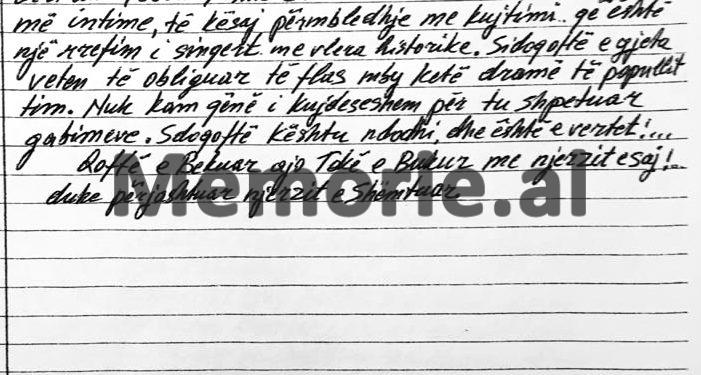 më intime, të kësaj përmbledhje me kujtimi.. qe është
një rrefim i singert me vlera historike. Sidoqoftë e gjeta
veten të obliguar të flas mby ketë dramë të popullit
tim. Nuk kam qënë i kujdeseshem për tu shpetuar
gabimeve. Sdoqoftë kështu ndodhi, dhe është e vertet!...
Qoftë e Bekuar ajo Tokë e Bukur me njerzit e saj!..
duke përjashtuar njerzit e Shëmtuar.
Memorie.al